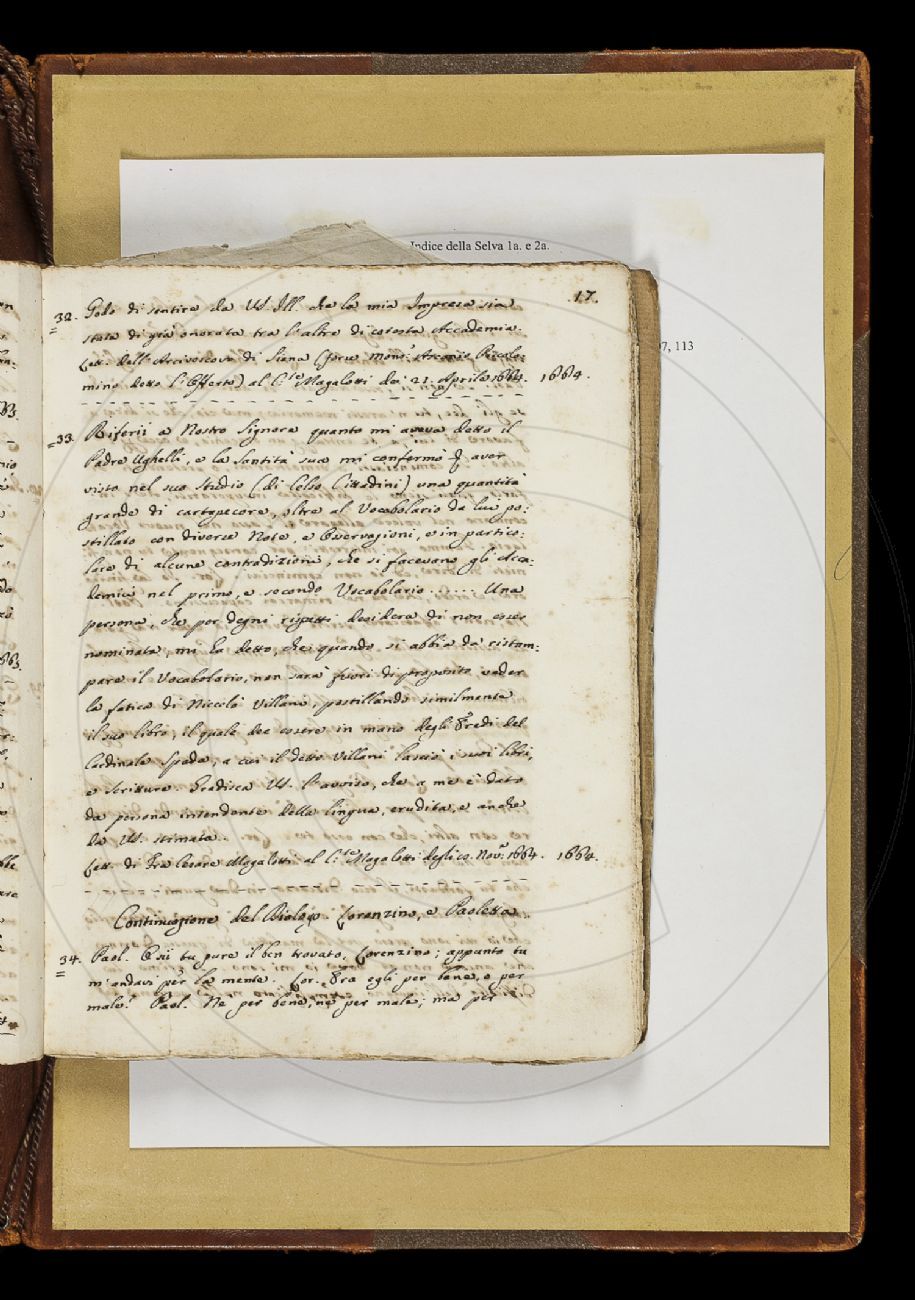 Indice della Selva 1a. e 2a.
7, 113
17.
32. Godo di sentire da VS. Ill. che la mia Impresa sia
stata di già onorata tra l'altre di cotesta Accademia.
Lett. dell'Arcivescovo di Siena (forse Mons.r Ascanio Piccolo=
mino detto l'Offerto) al C.te Magalotti de' 21. Aprile 1664. 1664.
33. Riferii a Nostro Signore quanto mi aveva detto il
Padre Ughelli, e la Santità sua mi confermò aver
visto nel suo Studio (di Celso Cittadini) una quantità
grande di cartapecore, oltre al Vocabolario da lui po=
stillato con diverse Note, e Osservazioni, e in partico=
lare di alcune contradizioni, che si facevano gli Acca=
demici nel primo, e secondo Vocabolario ...... Una
persona, che per degni rispetti desidera di non esser
nominata, mi ha detto, che quando si abbia da ristam=
pare il Vocabolario, non sarà fuori di proposito veder
la fatica di Niccolò Villani, postillando similmente
il suo libro, il quale dee essere in mano degli Eredi del
Cardinale Spada, a cui il detto Villani lasciò i suoi libri,
e scritture. Gradisca VS. l'avviso, che a me è dato
da persona intendente della lingua, erudita, e anche
da VS. stimata.
Lett. di Fra Cesare Magalotti al C.te Magalotti degli Nov.e 1664. 1664.
Continuazione del Dialogo. Lorenzino, e Paoletta.
34. Paol. O sii tu pure il ben trovato, Lorenzino; appunto tu
m'andavi per la mente. Lor. Era egli per bene, o per
male? Paol. Ne per bene, ne per male; ma per